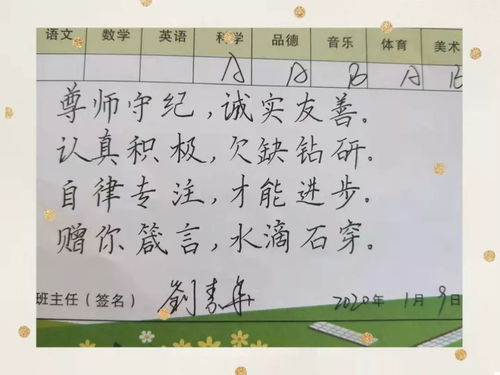 语文 数学 英语 科学 品德 音乐 体育 美术
A A B A B
尊师守纪,诚实友善。
认真积极,欠缺钻研。
自律专注,才能进步。
赠你箴言,水滴石穿。
班主任(签名) 2020年1月9日